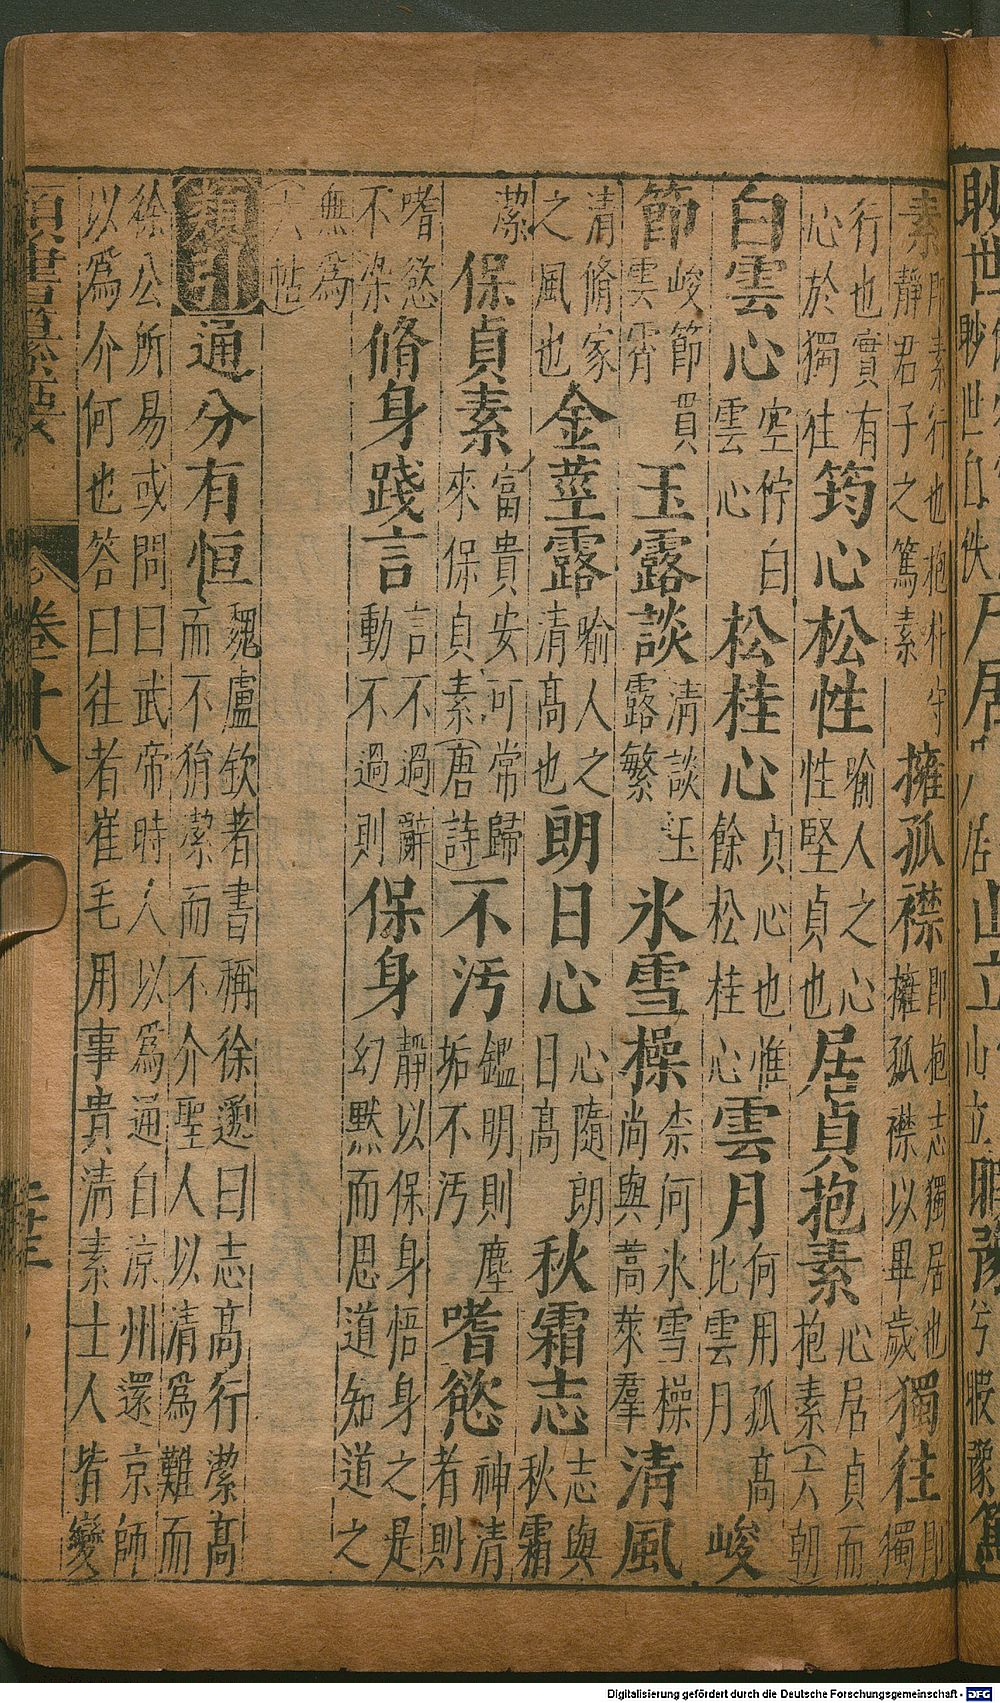 素即素行也抱朴守靜君子之篤素擁孤襟即抱志獨居也擁孤襟以畢歲獨往即獨
行也實有心於獨往筠心松性喻人之心性堅貞也居貞抱素心居貞而抱素(六朝)
白雲心空佇白雲心松桂心貞心也惟餘松桂心雲月何用孤高比雲月峻
節峻節貫雲霄玉露談清談玉露繁氷雪操柰何氷雪操尚與蒿萊羣清風
清脩家之風也金莖露喻人之清高也朗日心心隨朗日高秋霜志志與秋霜
潔保貞素富貴安可常歸來保貞素(唐詩)不汚鑑明則塵垢不汚嗜慾神清者則
嗜慾不染脩身踐言言不過辭動不過則保身靜以保身悟身之是幻默而思道知道之
無為(六帖)
類引通分有恒魏盧欽著書稱徐邈曰志高行潔高而不狷潔而不介聖人以清為難而
徐公所易或問曰武帝時人以為通自涼州還京師
以為介何也答曰往者崔毛用事貴清素士人皆變
卷十八